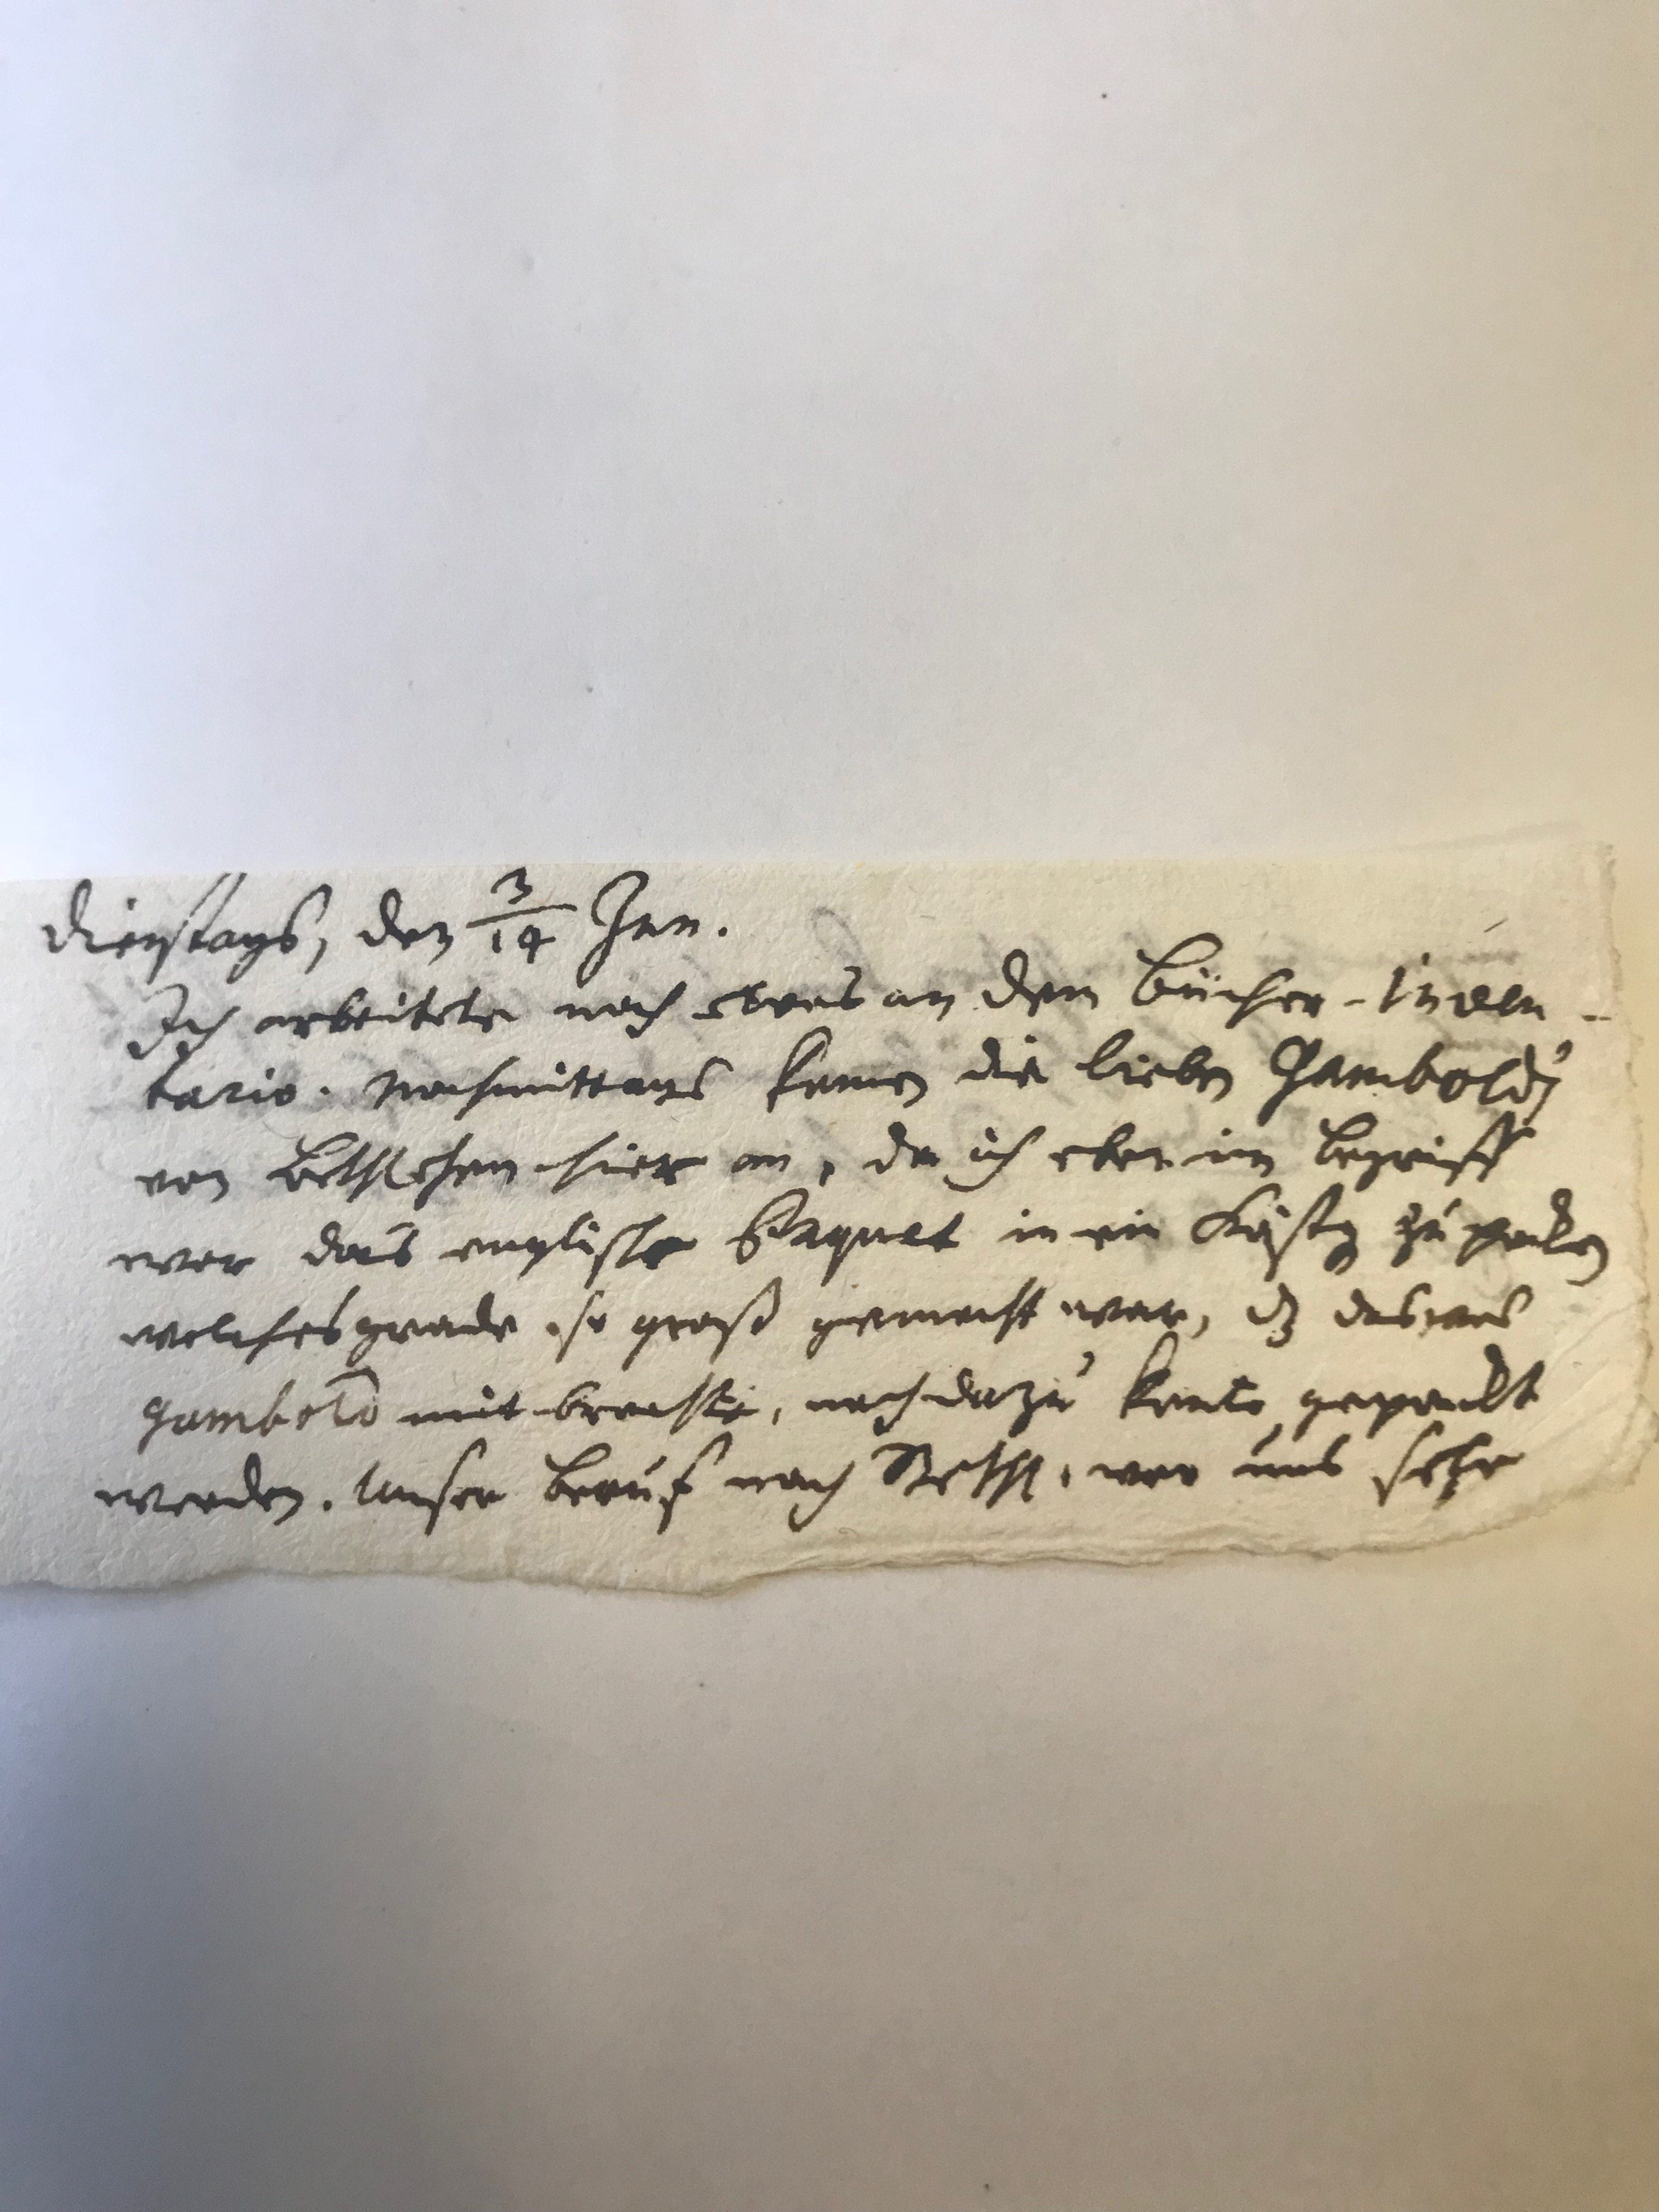 Dienstags, den 3/14 Jan.
Ich arbeitete noch etwas an dem Bücher-Inven-
tario. Nachmittags kamen die lieben Gambolds
von Bethlehem hier an, da ich eben im begriff
war das englische Paquet in ein Kästg zu packen
welches grade so groß gemacht war, dz das was
Gambold mit brachte, noch dazu konte gepackt
werden. Unser beruf nach Bethl. war uns sehr